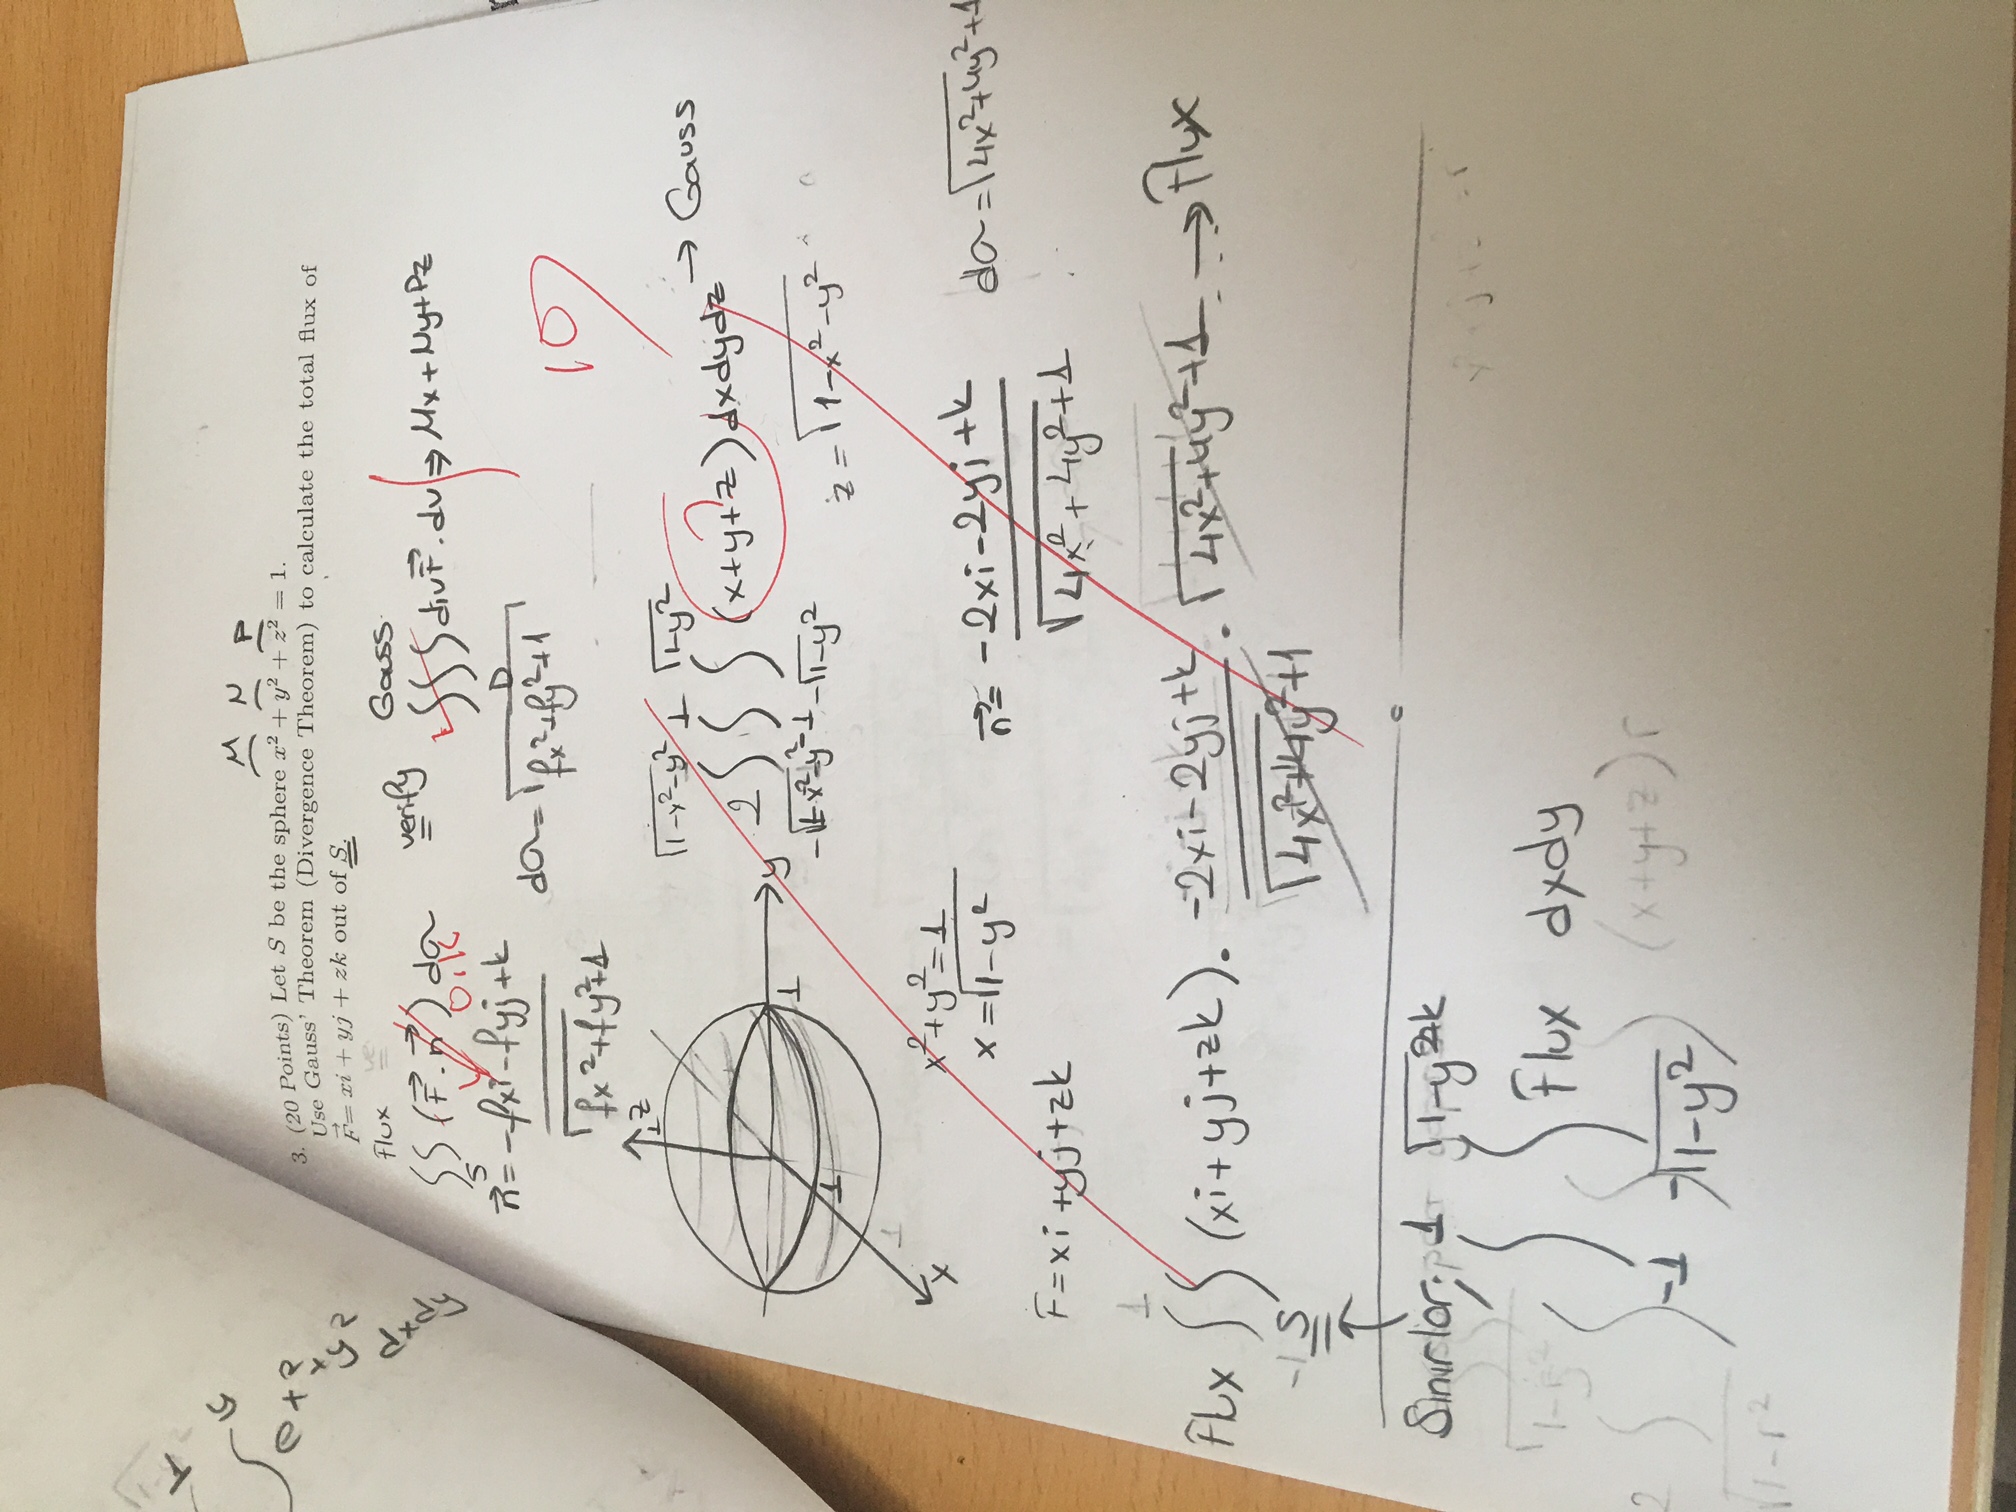 M N P
3. (20 Points) Let S be the sphere x² + y² + z² = 1.
Use Gauss' Theorem (Divergence Theorem) to calculate the total flux of
F⃗= xi + yj + zk out of S.
flux verify Gauss
∬S (F⃗ . n⃗) da ∭D divF⃗ . dv ⇒ Mx + Ny + Pz
O.K
n⃗ = -fxi - fyj + k / √(fx² + fy² + 1) da = √(fx² + fy² + 1)
10
z 1
y 1
x 1
√(1-x²-y²) 1 √(1-y²)
2 ∫ ∫ ∫ (x+y+z) dxdydz → Gauss
?
-√(1-x²-y²) -1 -√(1-y²)
z = √(1-x²-y²)
x² + y² = 1
x = √(1-y²)
n⃗ = -2xi - 2yj + k / √(4x² + 4y² + 1) da = √(4x² + 4y² + 1
F = xi + yj + zk
1
Flux ∬ (xi + yj + zk) . -2xi - 2yj + k / √(4x² + 4y² + 1) . √(4x² + 4y² + 1) → Flux
-1 S
Sınırlar: 1 √(1-y²) zk
∫ ∫ Flux dxdy
-1 -√(1-y²)
(x+y+z)r
2
√(1-r²)
e x²+y² dxdy